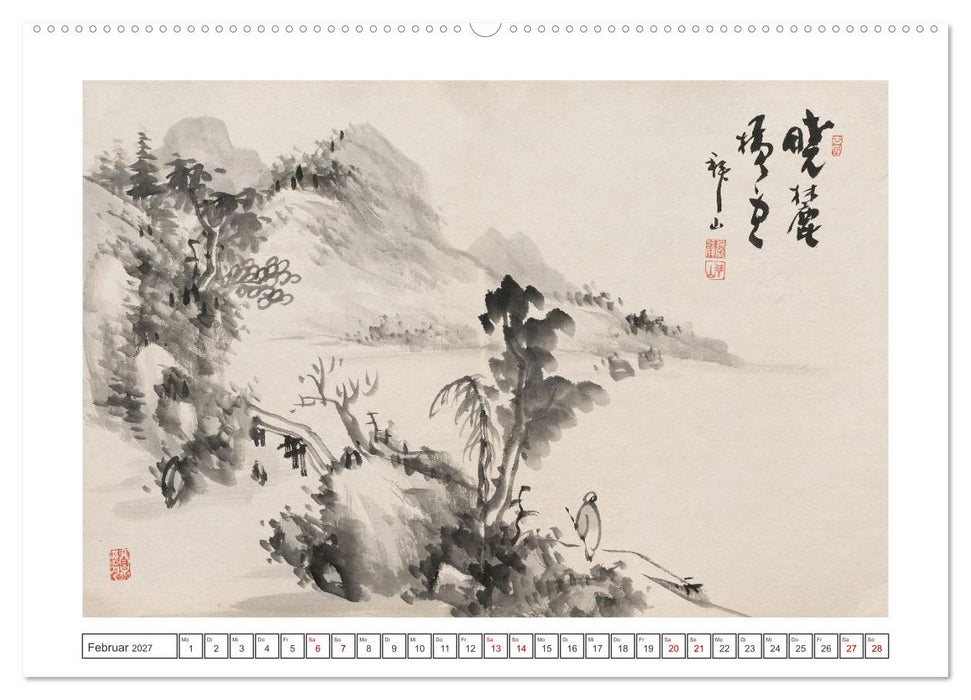 曉麓
山
Februar 2027
Mo Di Mi Do Fr Sa So Mo Di Mi Do Fr Sa So Mo Di Mi Do Fr Sa So Mo Di Mi Do Fr Sa So
1 2 3 4 5 6 7 8 9 10 11 12 13 14 15 16 17 18 19 20 21 22 23 24 25 26 27 28